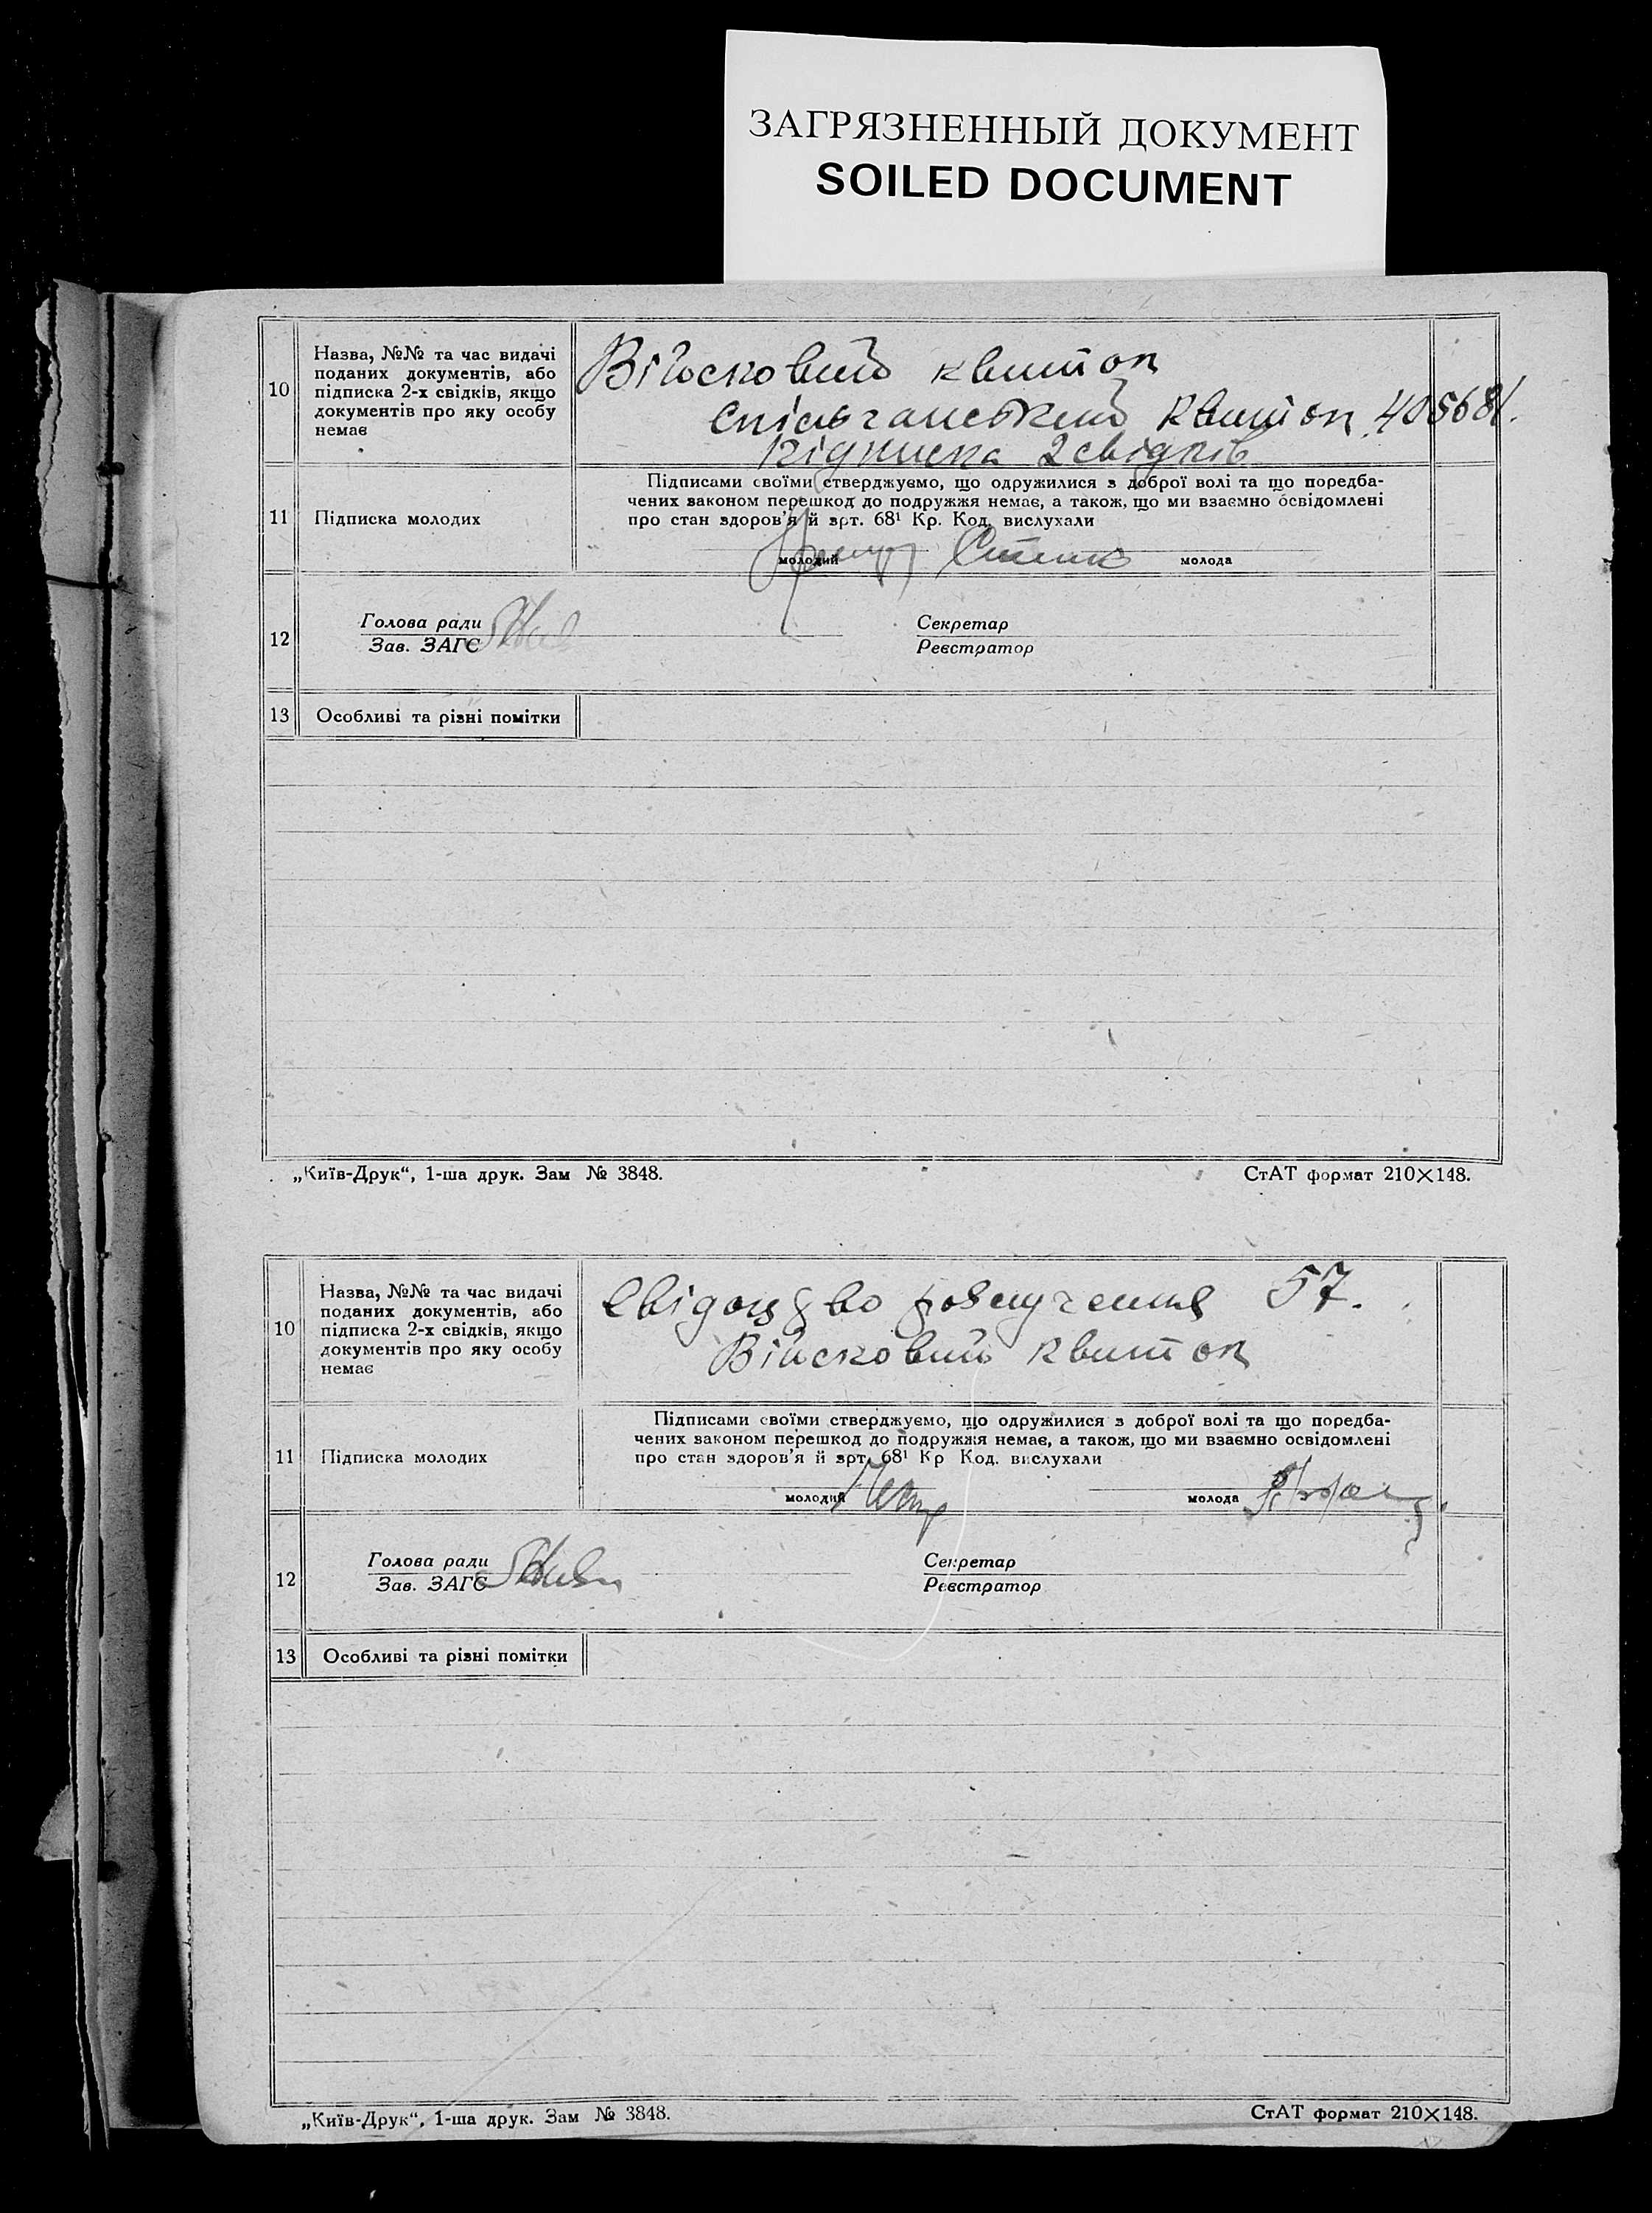 ЗАГРЯЗНЕННЫЙ ДОКУМЕНТ
SOILED DOCUMENT
10
Назва, №№ та час видачі
поданих документів, або
підписка 2-х свідків, якщо
документів про яку особу
немає
Військовий квиток
спільчанський квиток 405681.
Підписка 2 свідків
11
Підписка молодих
Підписами своїми стверджуємо, що одружилися з доброї волі та що поредба-
чених законом перешкод до подружжя немає, а також, що ми взаємно освідомлені
про стан здоров'я й арт. 68¹ Кр. Код. вислухали
молодий
молода
12
Голова ради
Зав. ЗАГС
Секретар
Реєстратор
13
Особливі та різні помітки
„Київ-Друк“, 1-ша друк. Зам № 3848.
СтАТ формат 210×148.
10
Назва, №№ та час видачі
поданих документів, або
підписка 2-х свідків, якщо
документів про яку особу
немає
Свідоцтво розлучення 57.
Військовий квиток
11
Підписка молодих
Підписами своїми стверджуємо, що одружилися з доброї волі та що поредба-
чених законом перешкод до подружжя немає, а також, що ми взаємно освідомлені
про стан здоров'я й арт. 68¹ Кр Код. вислухали
молодий
молода
12
Голова ради
Зав. ЗАГС
Секретар
Реєстратор
13
Особливі та різні помітки
„Київ-Друк“, 1-ша друк. Зам № 3848.
СтАТ формат 210×148.